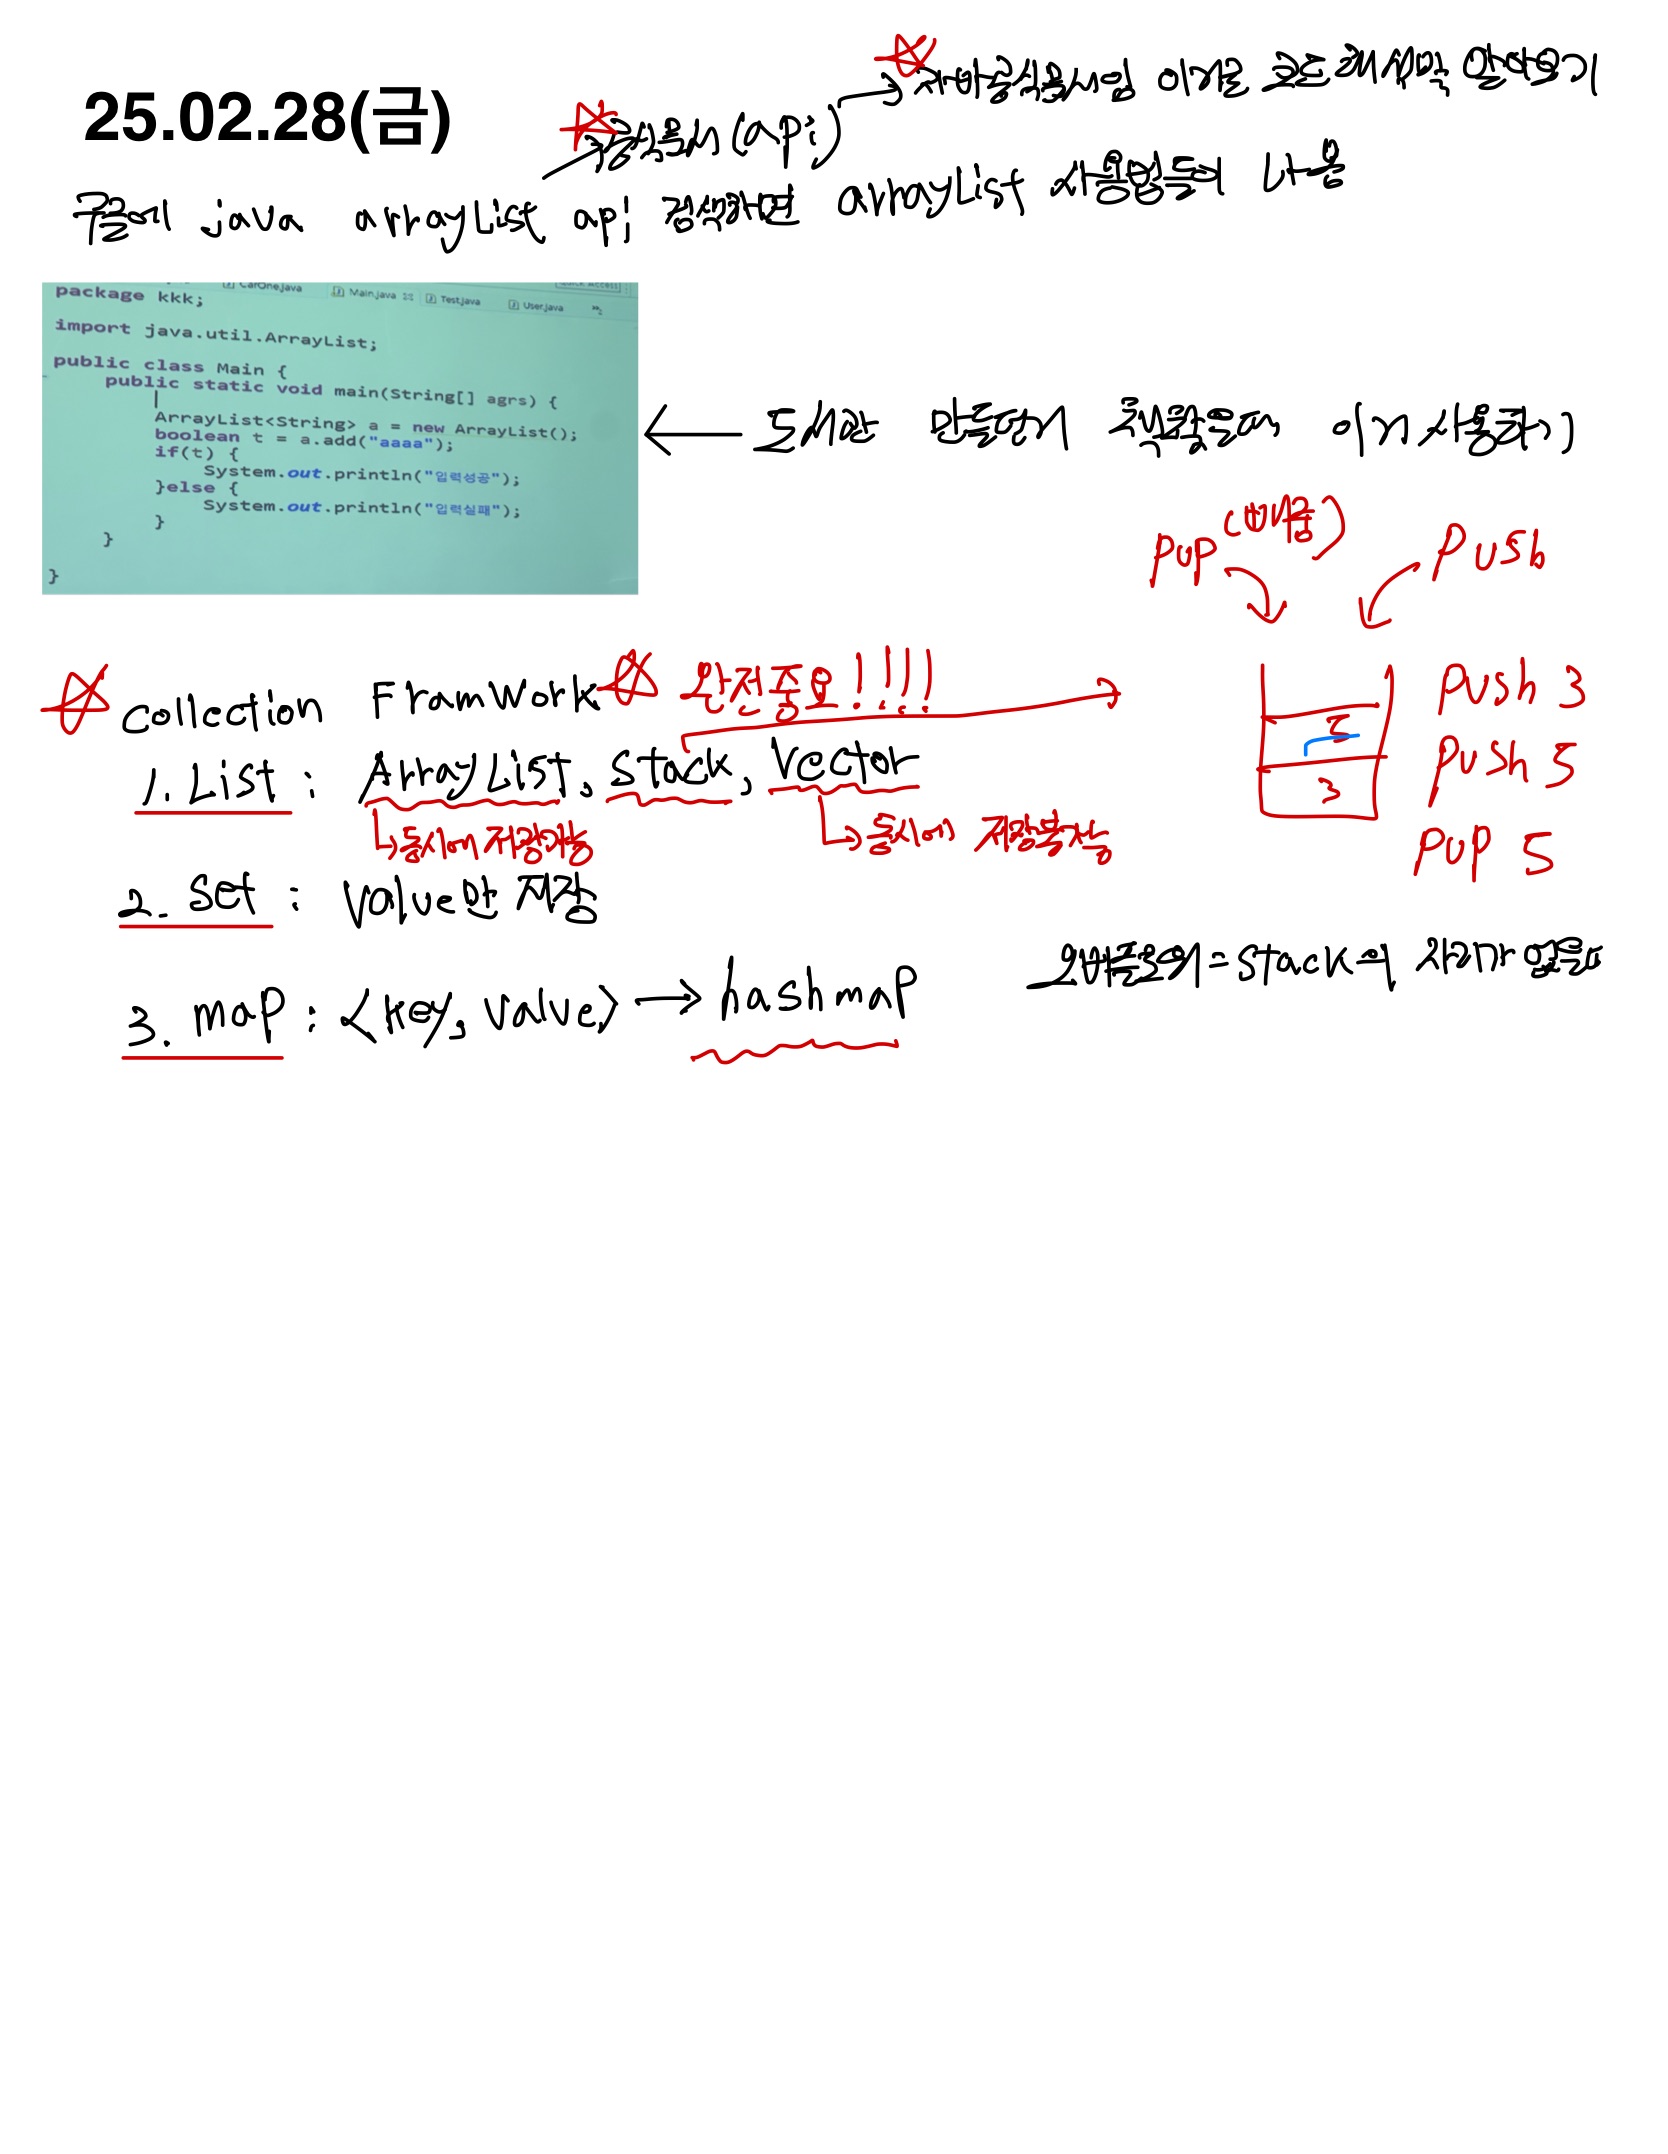 25.02.28(금)
공식문서(api)
자바공식문서임 이거로 코드해석막 알아보기
구글에 java arrayList api 검색하면 arrayList 사용법들이 나옴
CarOne.java Main.java Test.java User.java
package kkk;
import java.util.ArrayList;
public class Main {
public static void main(String[] agrs) {
ArrayList<String> a = new ArrayList();
boolean t = a.add("aaaa");
if(t) {
System.out.println("입력성공");
}else {
System.out.println("입력실패");
}
}
}
도서관 만들면서 책목록을 이거 사용하기
POP (빼줌)
Push
collection FramWork 완전중요!!!!
1. List : ArrayList, Stack, Vector
동시에 저장가능
동시에 저장불가능
Push 3
5
Push 5
3
POP 5
2. set : Value만 저장
오버플로의 = Stack의 자리가 없음
3. map : <key, value> → hashmap